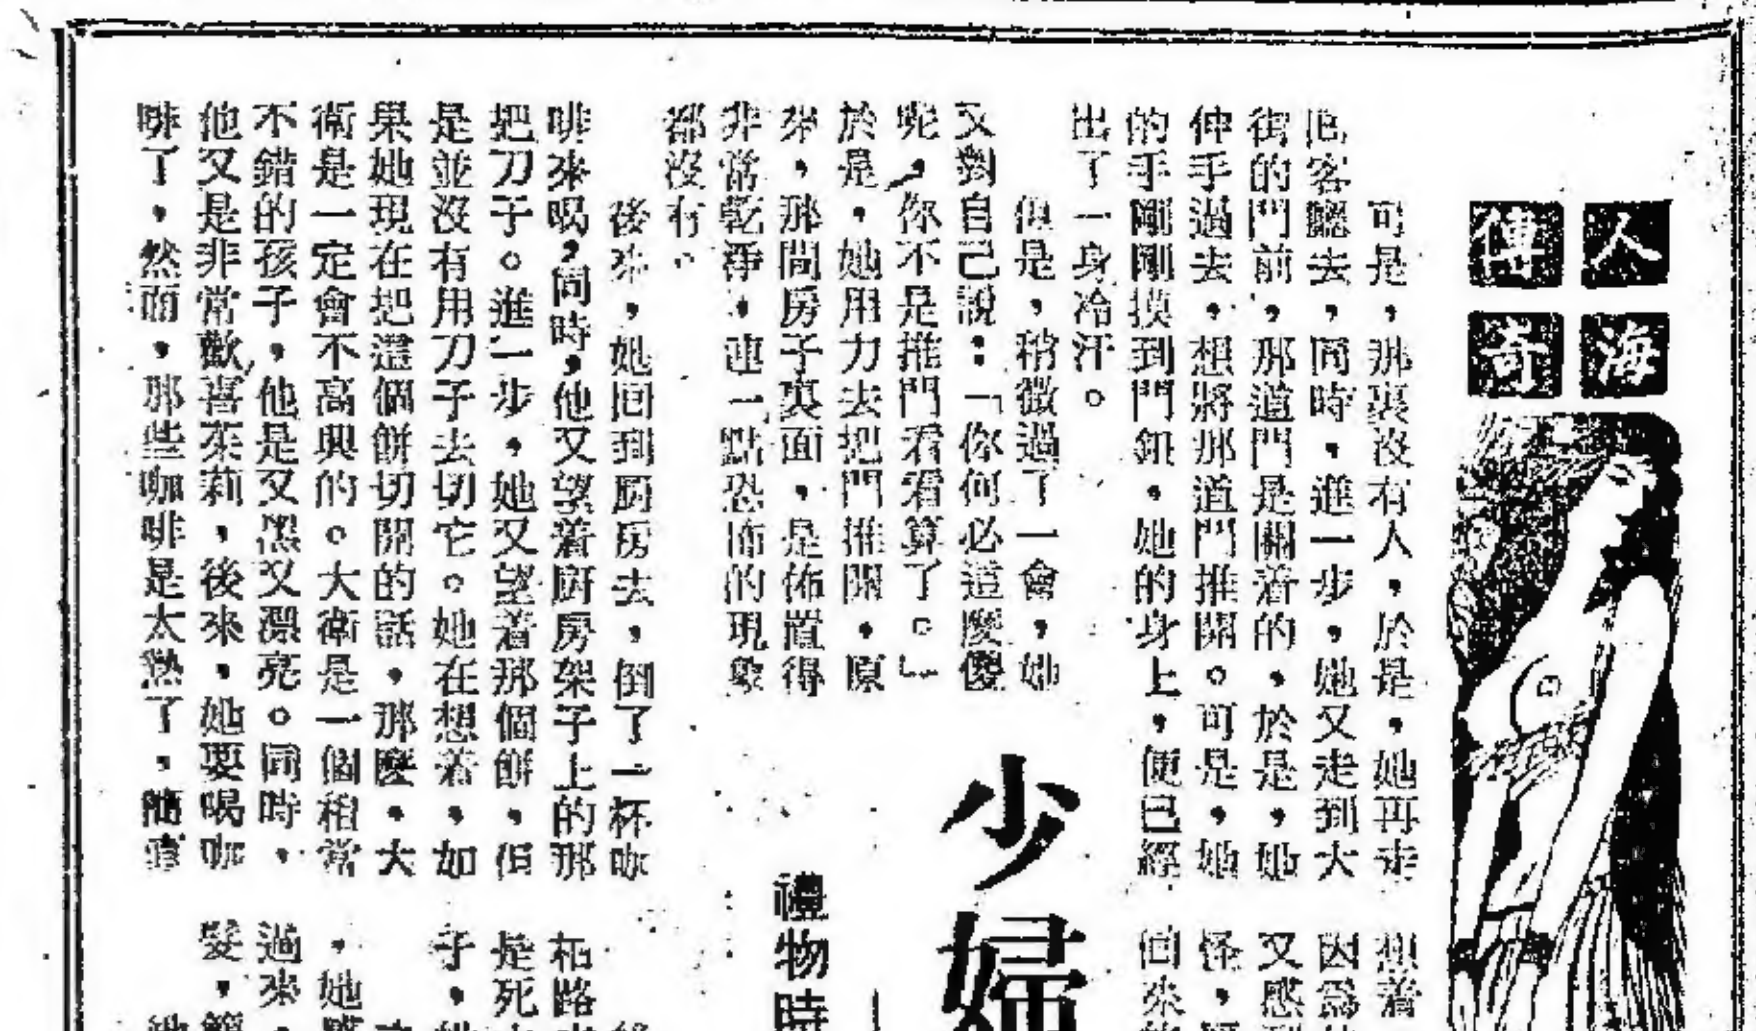 人海
傳奇
可是，那裏沒有人，於是，她再走
回客廳去，同時，進一步，她又走到大
街的門前，那道門是關着的，於是，她
伸手過去，想將那道門推開。可是，她
的手剛剛摸到門鈕，她的身上，便已經
出了一身冷汗。
但是，稍微過了一會，她
又對自己說：「你何必這麼傻
呢，你不是推門看看算了。」
於是，她用力去把門推開，原
來，那間房子裏面，是佈置得
非常乾淨，連一點恐怖的現象
都沒有。
少婦
禮物時
後來，她回到厨房去，倒了一杯咖
啡來喝，同時，他又望着厨房架子上的那
把刀子。進一步，她又望着那個餅，但
是並沒有用刀子去切它。她在想着，如
果她現在把這個餅切開的話，那麼，大
衛是一定會不高興的。大衛是一個相當
不錯的孩子，他是又黑又漂亮。同時，
他又是非常歡喜茱莉，後來，她要喝咖
啡了，然而，那些咖啡是太熱了，簡直
想着
因爲
又感
怪，
回來
柘路
是死
子，她
，她感
過來，
髮，